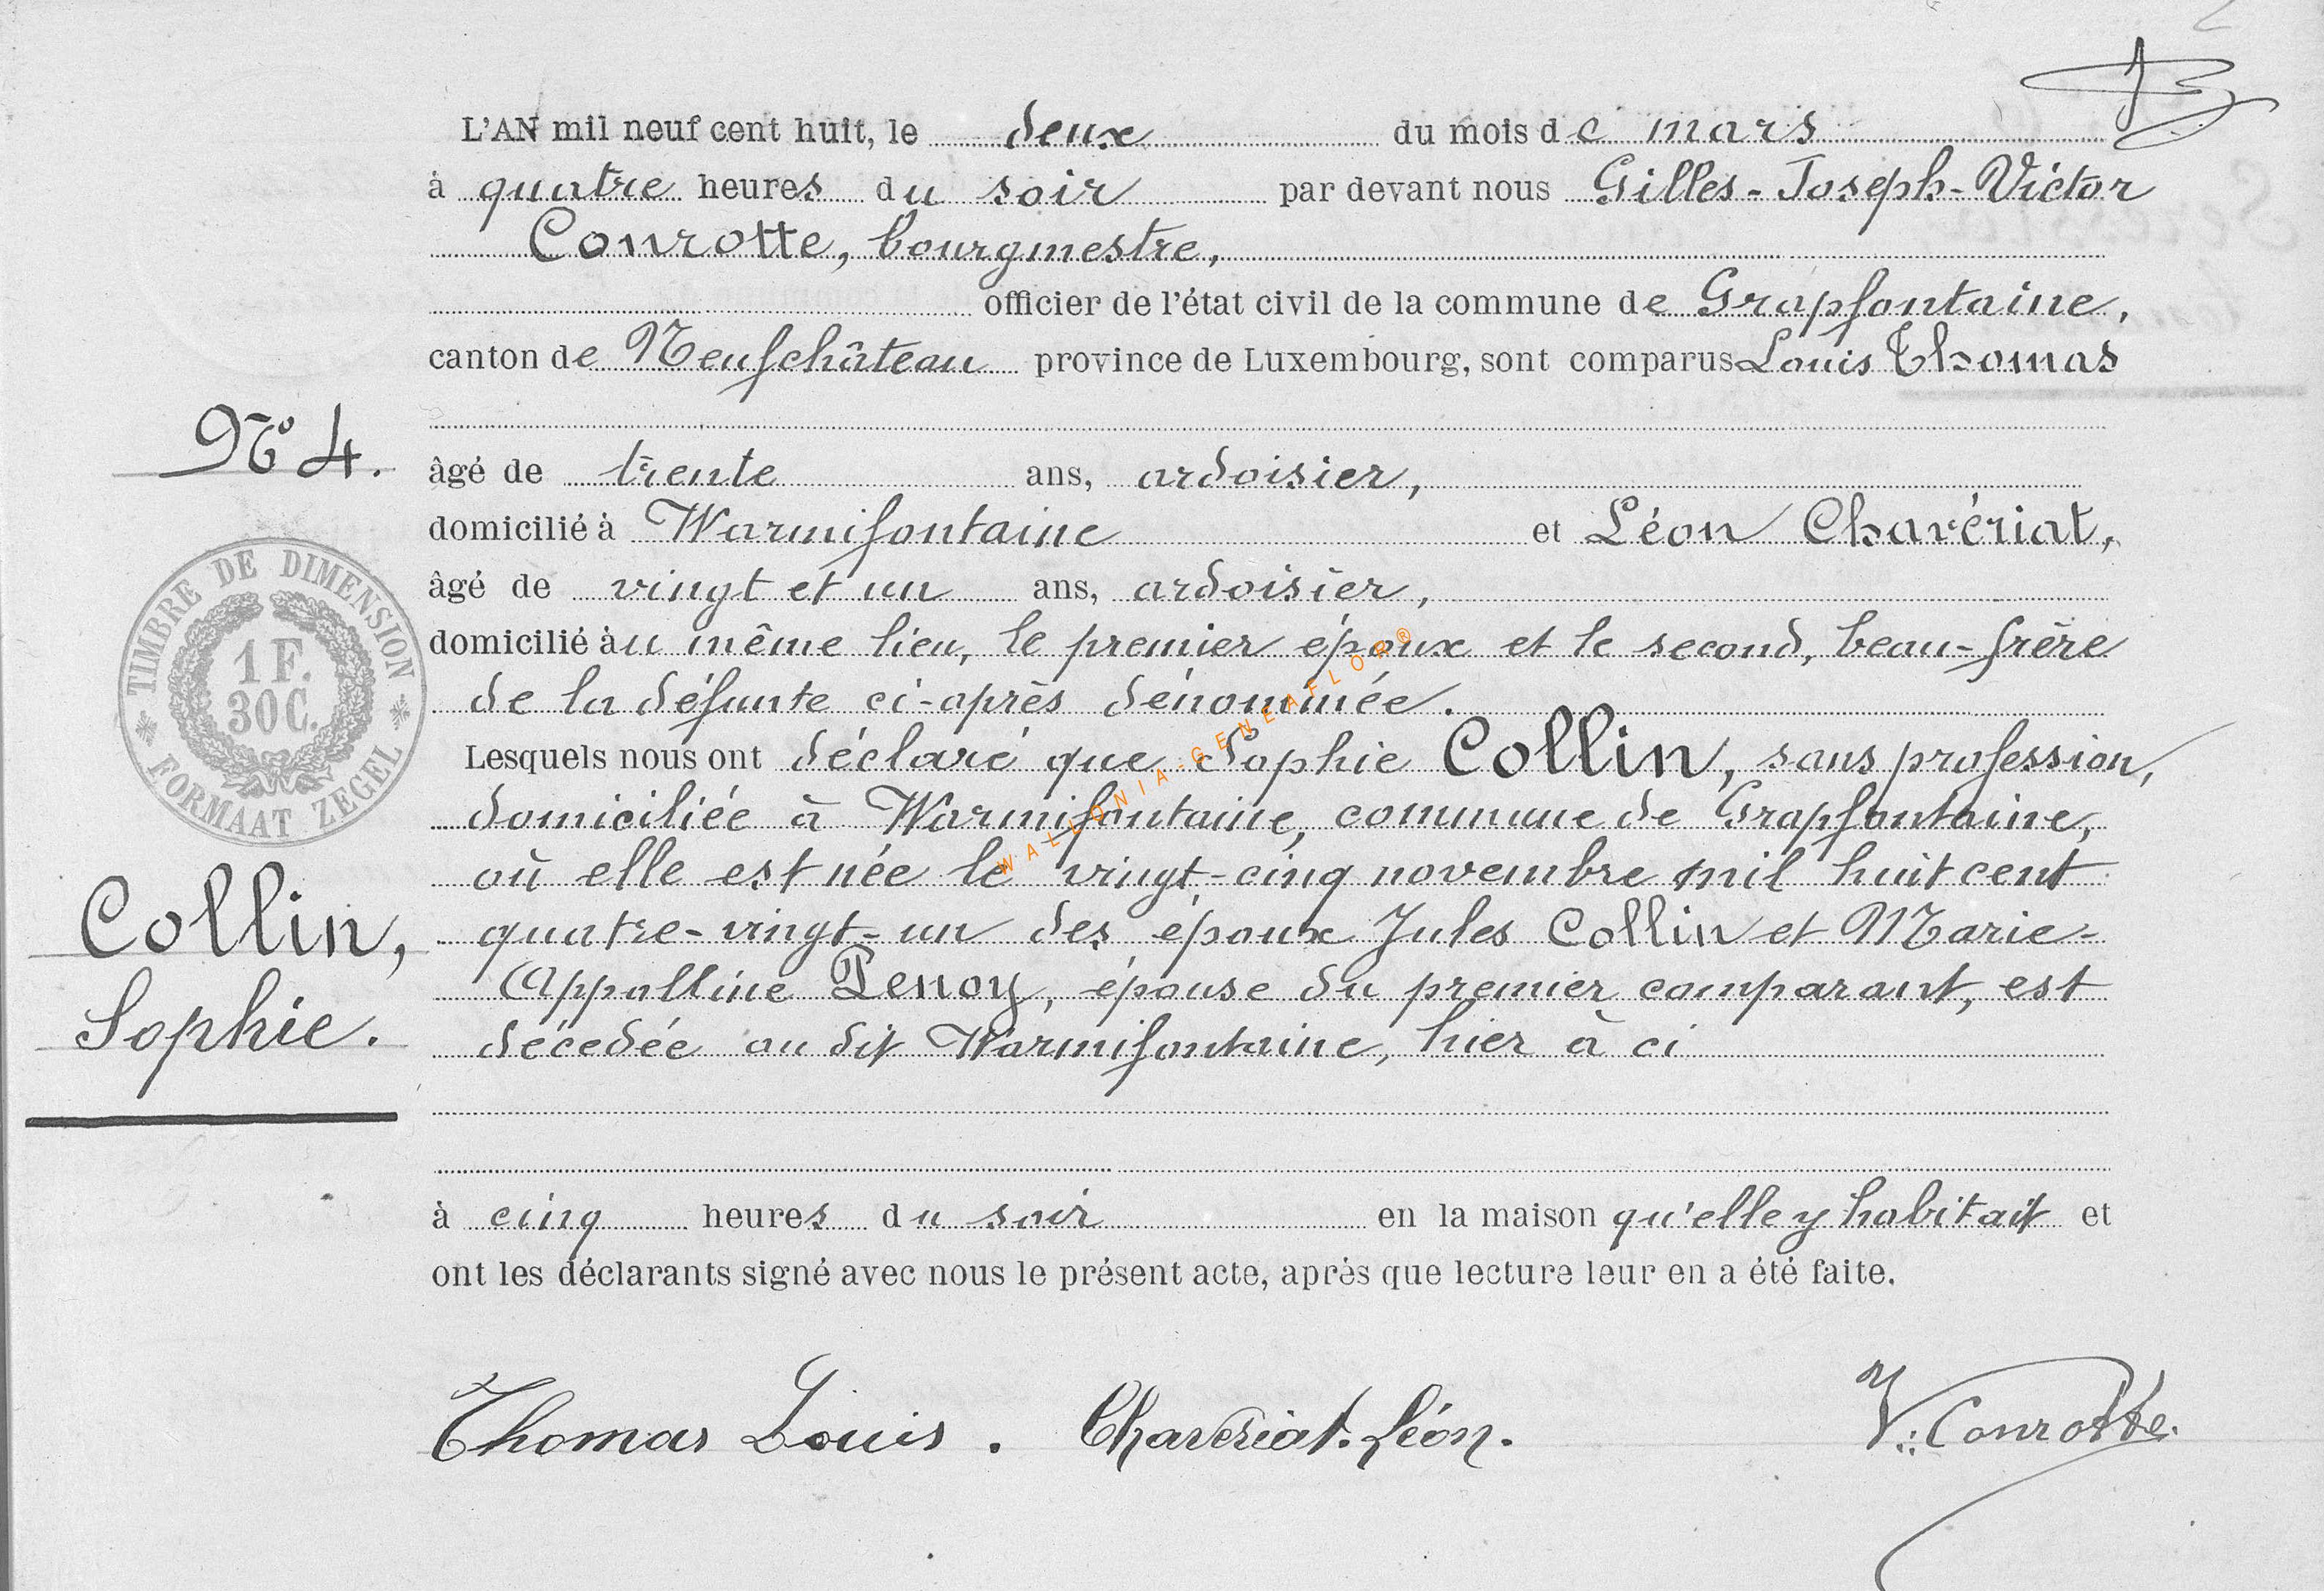 L'AN mil neuf cent huit, le deux du mois de mars
à quatre heures du soir par devant nous Gilles-Joseph-Victor
Conrotte, bourgmestre,
officier de l'état civil de la commune de Grapfontaine,
canton de Neufchâteau province de Luxembourg, sont comparus Louis Thomas
N° 4.
âgé de trente ans, ardoisier,
domicilié à Warmifontaine et Léon Chavériat,
âgé de vingt et un ans, ardoisier,
domicilié au même lieu, le premier époux et le second, beau-frère
de la défunte ci-après dénommée.
TIMBRE DE DIMENSION
1 F.
30 C.
FORMAAT ZEGEL
WALLONIA-GENEAFLOR®
Lesquels nous ont déclaré que Sophie Collin, sans profession,
domiciliée à Warmifontaine, commune de Grapfontaine,
où elle est née le vingt-cinq novembre mil huit cent
quatre-vingt-un des époux Jules Collin et Marie-
Appolline Penoy, épouse du premier comparant, est
décedée au dit Warmifontaine, hier à ci
Collin,
Sophie.
à cinq heures du soir en la maison qu'elle y habitait et
ont les déclarants signé avec nous le présent acte, après que lecture leur en a été faite.
Thomas Louis. Chavériat. Léon. V. Conrotte.